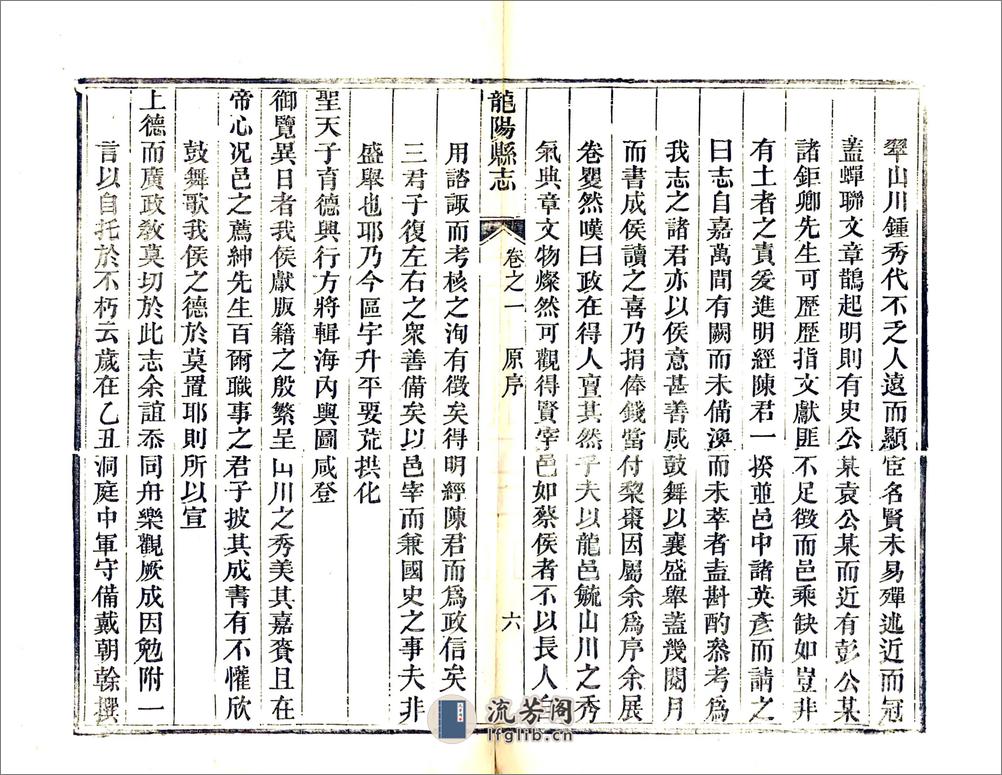 翠山川鍾秀代不乏人遠而顯宦名賢未易殫述近而冠
蓋蟬聯文章鵲起明則有史公某袁公某而近有彭公某
諸鉅卿先生可歷歷指文獻匪不足徵而邑乘缺如豈非
有土者之責爰進明經陳君一揆並邑中諸英彥而請之
曰志自嘉萬間有闕而未備渙而未萃者盍斟酌叅考爲
我志之諸君亦以侯意甚善咸鼓舞以襄盛舉蓋幾閱月
而書成侯讀之喜乃捐俸錢當付黎棗因屬余爲序余展
卷矍然嘆曰政在得人亶其然乎夫以龍邑毓山川之秀
氣典章文物燦然可觀得賢宰邑如蔡侯者不以長人自
龍陽縣志
卷之一
原序
六
用諮諏而考核之洵有徵矣得明經陳君而爲政信矣
三君子復左右之衆善備矣以邑宰而兼國史之事夫非
盛舉也耶乃今區宇升平要荒拱化
聖天子育德興行方將輯海內輿圖咸登
御覽異日者我侯獻版籍之殷繁呈山川之秀美其嘉賚且在
帝心况邑之薦紳先生百爾職事之君子披其成書有不懽欣
鼓舞歌我侯之德於莫置耶則所以宣
上德而廣政教莫切於此志余誼忝同舟樂觀厥成因勉附一
言以自托於不朽云歲在乙丑洞庭中軍守備戴朝榦撰
流芳阁
lfglib.cn